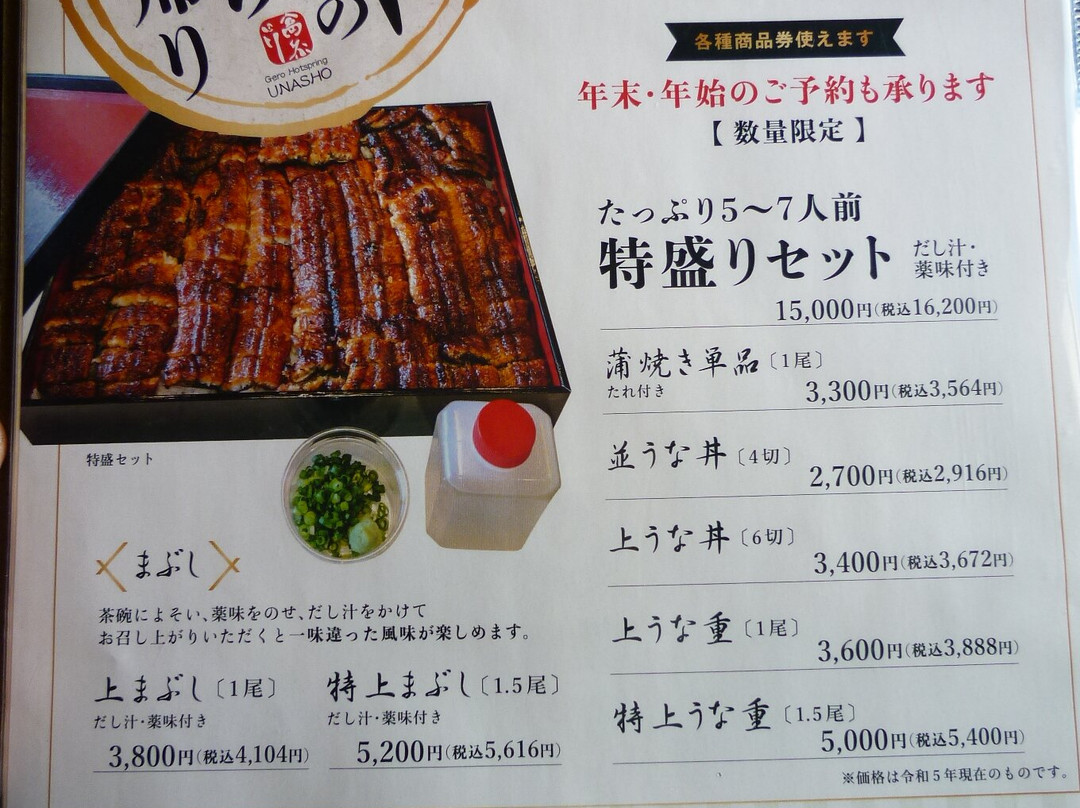 り
の
Gero Hotspring
UNASHO
各種商品券使えます
年末・年始のご予約も承ります
【数量限定】
たっぷり5〜7人前
特盛りセット だし汁・
薬味付き
15,000円(税込16,200円)
蒲焼き単品〔1尾〕
たれ付き
3,300円(税込3,564円)
並うな丼〔4切〕
2,700円(税込2,916円)
上うな丼〔6切〕
3,400円(税込3,672円)
上うな重〔1尾〕
3,600円(税込3,888円)
特上うな重〔1.5尾〕
5,000円(税込5,400円)
※価格は令和5年現在のものです。
特盛セット
まぶし
茶碗によそい、薬味をのせ、だし汁をかけて
お召し上がりいただくと一味違った風味が楽しめます。
上まぶし〔1尾〕
だし汁・薬味付き
3,800円(税込4,104円)
特上まぶし〔1.5尾〕
だし汁・薬味付き
5,200円(税込5,616円)